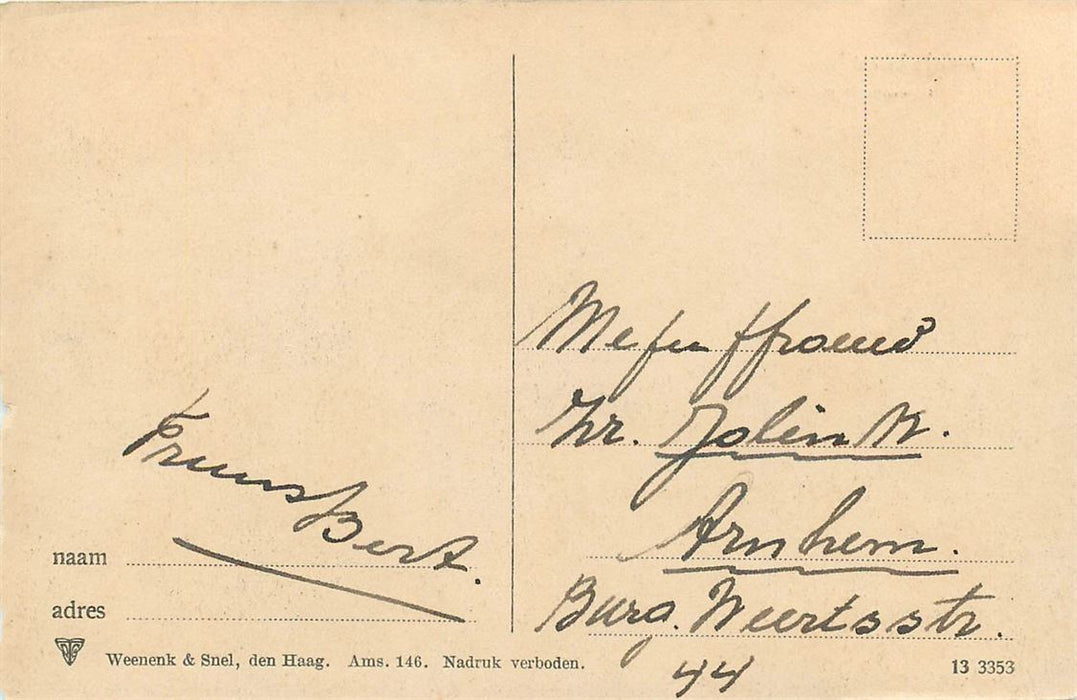 Mejuffrouw
Zr. Jolink.
Arnhem.
Burg. Weertsstr.
44
Frans Bert.
naam
adres
Weenenk & Snel, den Haag. Ams. 146. Nadruk verboden.
13 3353